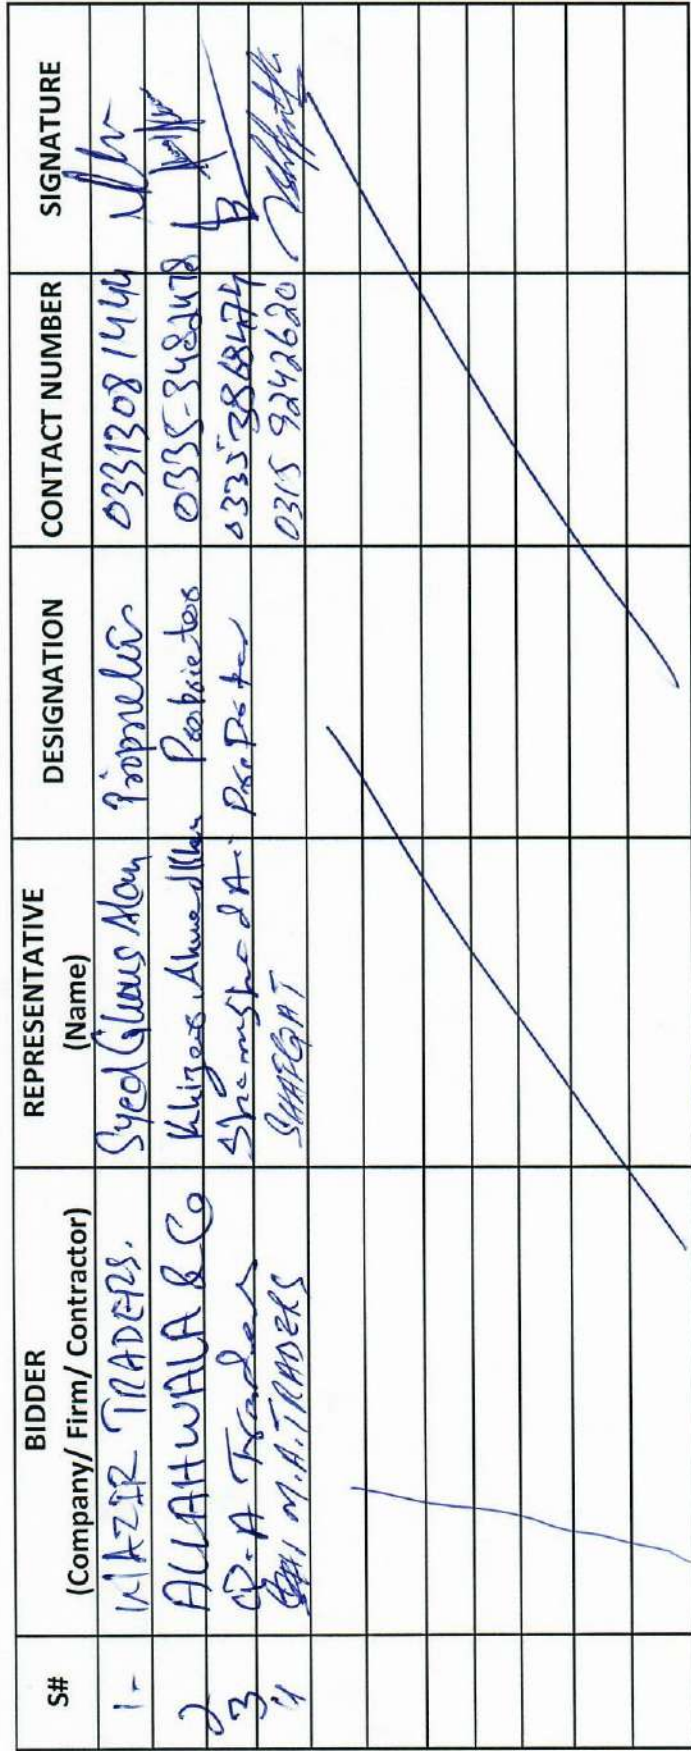 S# BIDDER (Company/ Firm/ Contractor) REPRESENTATIVE (Name) DESIGNATION CONTACT NUMBER SIGNATURE
1- WAZIR TRADERS. Syed Ghous Alam Proprietor 03313081444
2 ALLAHWALA & Co Khizar Ahmed Khan Proprietor 0335-3482478
3 A Traders 0335 3868474
4 M.A. TRADERS SHAFQAT 0315 9242620